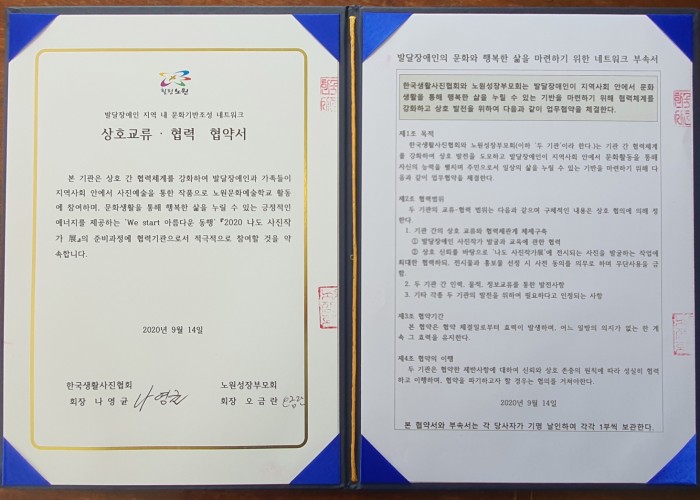 힐링노원
발달장애인 지역 내 문화기반조성 네트워크
상호교류 · 협력 협약서
본 기관은 상호 간 협력체계를 강화하여 발달장애인과 가족들이
지역사회 안에서 사진예술을 통한 작품으로 노원문화예술학교 활동
에 참여하며, 문화생활을 통해 행복한 삶을 누릴 수 있는 긍정적인
에너지를 제공하는 'We start 아름다운 동행' 『2020 나도 사진작
가 展』의 준비과정에 협력기관으로서 적극적으로 참여할 것을 약
속합니다.
2020년 9월 14일
한국생활사진협회
회장 나 영 균 나영균
노원성장부모회
회장 오 금 란
발달장애인의 문화와 행복한 삶을 마련하기 위한 네트워크 부속서
한국생활사진협회와 노원성장부모회는 발달장애인이 지역사회 안에서 문화생
활을 통해 행복한 삶을 누릴 수 있는 기반을 마련하기 위해 협력체계를
강화하고 상호 발전을 위하여 다음과 같이 업무협약을 체결한다.
제1조 목적
한국생활사진협회와 노원성장부모회(이하 '두 기관'이라 한다.)는 기관 간 협력체계
를 강화하여 상호 발전을 도모하고 발달장애인이 지역사회 안에서 문화활동을 통해
자신의 능력을 펼치며 주민으로서 일상의 삶을 누릴 수 있는 기반을 마련하기 위해 다
음과 같이 업무협약을 체결한다.
제2조 협력범위
두 기관의 교류·협력 범위는 다음과 같으며 구체적인 내용은 상호 협의에 의해 정
한다.
1. 기관 간의 상호 교류와 협력체관계 체제구축
① 발달장애인 사진작가 발굴과 교육에 관한 협력
② 상호 신뢰를 바탕으로 '나도 사진작가展'에 전시되는 사진을 발굴하는 작업에
최대한 협력하되, 전시물과 홍보물 선정 시 사전 동의를 의무로 하며 무단사용을 금
함.
2. 두 기관 간 인력, 물적, 정보교류를 통한 발전사항
3. 기타 각종 두 기관의 발전을 위하여 필요하다고 인정되는 사항
제3조 협약기간
본 협약은 협약 체결일로부터 효력이 발생하며, 어느 일방의 의지가 없는 한 계
속 그 효력을 유지한다.
제4조 협약의 이행
두 기관은 협약한 제반사항에 대하여 신뢰와 상호 존중의 원칙에 따라 성실히 협력
하고 이행하며, 협약을 파기하고자 할 경우는 협의를 거쳐야한다.
2020년 9월 14일
본 협약서와 부속서는 각 당사자가 기명 날인하여 각각 1부씩 보관한다.